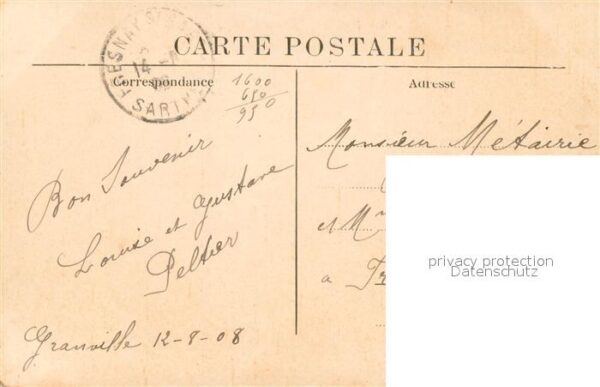 CARTE POSTALE
FRESNAY S
14
SARTHE
Correspondance
Adresse
1600
650
950
Bon Souvenir
Louise et Gustave
Peltier
Granville 12-8-08
Monsieur Métairie
et M
a Fr
privacy protection
Datenschutz